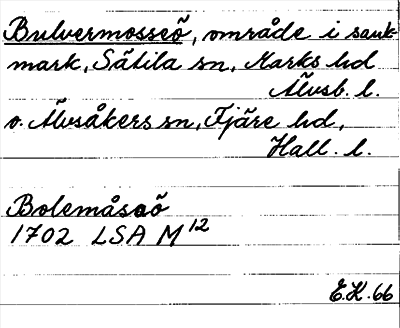 Bulvermosseö, område i sank-
mark, Sätila sn, Marks hd
Älvsb. l.
o. Älvsåkers sn, Fjäre hd,
Hall. l.
Bolemåsaö
1702 LSA M12
E.H. 66